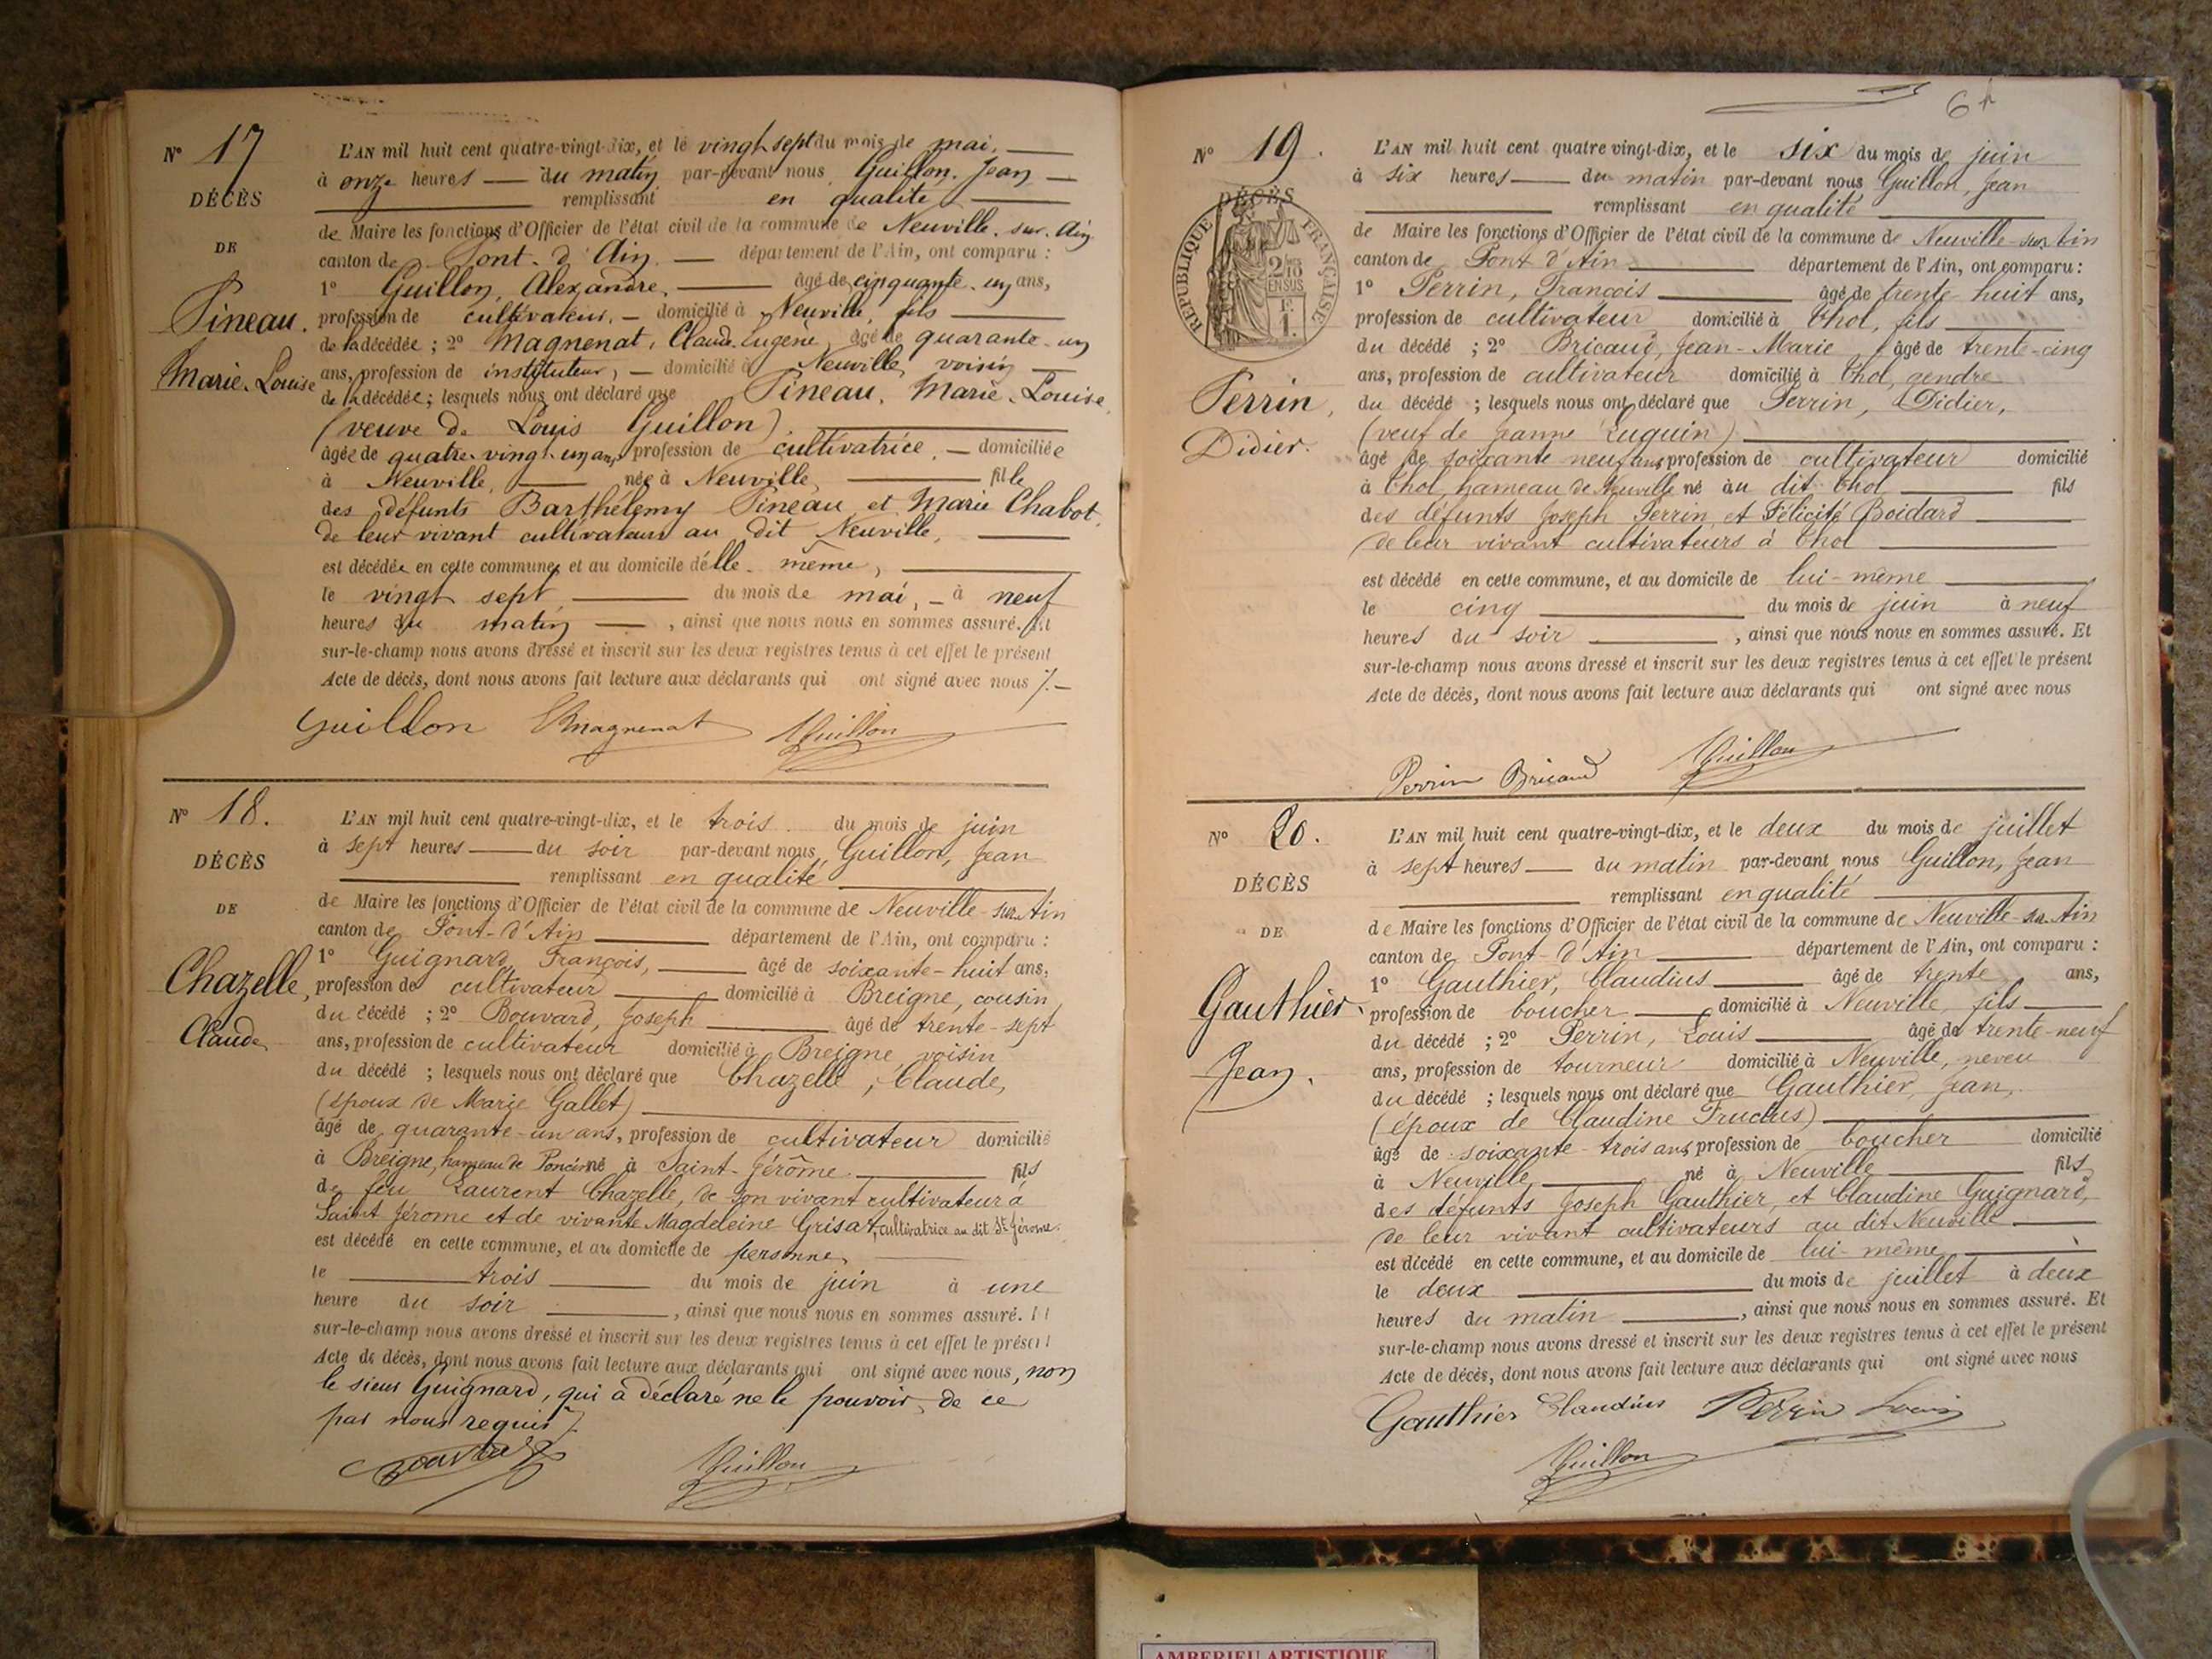 N° 17
DÉCÈS
DE
Pineau.
Marie-Louise
L'AN mil huit cent quatre-vingt-dix, et le vingt sept du mois de mai,
à onze heures du matin par-devant nous Guillon, Jean
remplissant en qualité
de Maire les fonctions d'Officier de l'état civil de la commune de Neuville-sur-Ain
canton de Pont-d'Ain département de l'Ain, ont comparu :
1° Guillon, Alexandre, âgé de cinquante-un ans,
profession de cultivateur, domicilié à Neuville, fils
de la décédée ; 2° Magnenat, Claude-Eugène, âgé de quarante-un
ans, profession de instituteur, domicilié à Neuville, voisin
de la décédée ; lesquels nous ont déclaré que Pineau, Marie-Louise,
(veuve de Louis Guillon)
âgée de quatre-vingt-un ans, profession de cultivatrice, domiciliée
à Neuville, née à Neuville, fille
des défunts Barthélemy Pineau et Marie Chabot,
de leur vivant cultivateurs au dit Neuville,
est décédée en cette commune, et au domicile d'elle-même,
le vingt sept du mois de mai, à neuf
heures du matin, ainsi que nous nous en sommes assuré. Et
sur-le-champ nous avons dressé et inscrit sur les deux registres tenus à cet effet le présent
Acte de décès, dont nous avons fait lecture aux déclarants qui ont signé avec nous
Guillon Magnenat Guillon
N° 18.
DÉCÈS
DE
Chazelle,
Claude
L'AN mil huit cent quatre-vingt-dix, et le trois du mois de juin
à sept heures du soir par-devant nous Guillon, Jean
remplissant en qualité
de Maire les fonctions d'Officier de l'état civil de la commune de Neuville-sur-Ain
canton de Pont-d'Ain département de l'Ain, ont comparu :
1° Guignard, François, âgé de soixante-huit ans,
profession de cultivateur domicilié à Breigne, cousin
du décédé ; 2° Bouvard, Joseph âgé de trente-sept
ans, profession de cultivateur domicilié à Breigne, voisin
du décédé ; lesquels nous ont déclaré que Chazelle, Claude,
(époux de Marie Gallet)
âgé de quarante-un ans, profession de cultivateur domicilié
à Breigne, hameau de Poncin né à Saint-Jérôme fils
de feu Laurent Chazelle, de son vivant cultivateur à
Saint Jérome et de vivante Magdeleine Grisat, cultivatrice au dit St Jérome.
est décédé en cette commune, et au domicile de personne,
le trois du mois de juin à une
heure du soir, ainsi que nous nous en sommes assuré. Et
sur-le-champ nous avons dressé et inscrit sur les deux registres tenus à cet effet le présent
Acte de décès, dont nous avons fait lecture aux déclarants qui ont signé avec nous, non
le sieur Guignard, qui a déclaré ne le pouvoir, de ce
par nous requis
Bouvard Guillon
6
N° 19.
DÉCÈS
RÉPUBLIQUE FRANÇAISE
2/10
EN SUS
1.
Perrin,
Didier.
L'AN mil huit cent quatre vingt-dix, et le six du mois de juin
à six heures du matin par-devant nous Guillon, Jean
remplissant en qualité
de Maire les fonctions d'Officier de l'état civil de la commune de Neuville-sur-Ain
canton de Pont d'Ain département de l'Ain, ont comparu :
1° Perrin, François âgé de trente huit ans,
profession de cultivateur domicilié à Thol, fils
du décédé ; 2° Bricaud, Jean-Marie âgé de trente-cinq
ans, profession de cultivateur domicilié à Thol, gendre
du décédé ; lesquels nous ont déclaré que Perrin, Didier,
(veuf de Jeanne Luquin)
âgé de soixante neuf ans, profession de cultivateur domicilié
à Thol, hameau de Neuville né au dit Thol fils
des défunts Joseph Perrin et Félicité Boidard
de leur vivant cultivateurs à Thol
est décédé en cette commune, et au domicile de lui-même
le cinq du mois de juin à neuf
heures du soir, ainsi que nous nous en sommes assuré. Et
sur-le-champ nous avons dressé et inscrit sur les deux registres tenus à cet effet le présent
Acte de décès, dont nous avons fait lecture aux déclarants qui ont signé avec nous
Perrin Bricaud Guillon
N° 20.
DÉCÈS
DE
Gauthier
Jean.
L'AN mil huit cent quatre-vingt-dix, et le deux du mois de juillet
à sept heures du matin par-devant nous Guillon, Jean
remplissant en qualité
de Maire les fonctions d'Officier de l'état civil de la commune de Neuville-sur-Ain
canton de Pont-d'Ain département de l'Ain, ont comparu :
1° Gauthier, Claudius âgé de trente ans,
profession de boucher domicilié à Neuville, fils
du décédé ; 2° Perrin, Louis âgé de trente-neuf
ans, profession de tourneur domicilié à Neuville, neveu
du décédé ; lesquels nous ont déclaré que Gauthier, Jean,
(époux de Claudine Fruclus)
âgé de soixante-trois ans, profession de boucher domicilié
à Neuville, né à Neuville fils
des défunts Joseph Gauthier, et Claudine Guignard,
de leur vivant cultivateurs au dit Neuville
est décédé en cette commune, et au domicile de lui-même
le deux du mois de juillet à deux
heures du matin, ainsi que nous nous en sommes assuré. Et
sur-le-champ nous avons dressé et inscrit sur les deux registres tenus à cet effet le présent
Acte de décès, dont nous avons fait lecture aux déclarants qui ont signé avec nous
Gauthier Claudius Perrin Louis
Guillon
AMBERIEU ARTISTIQUE